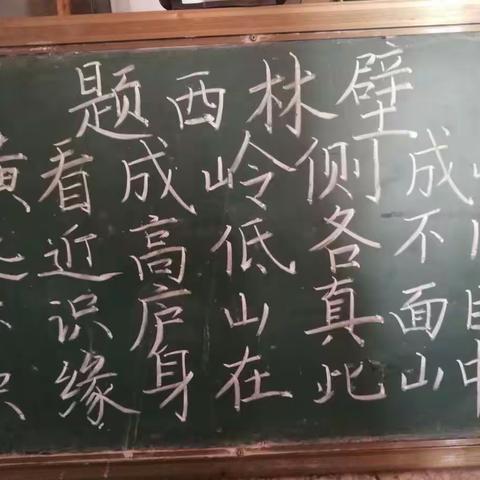 题西林壁
看成岭侧成
近高低各不
识庐山真面目
只缘身在此山中